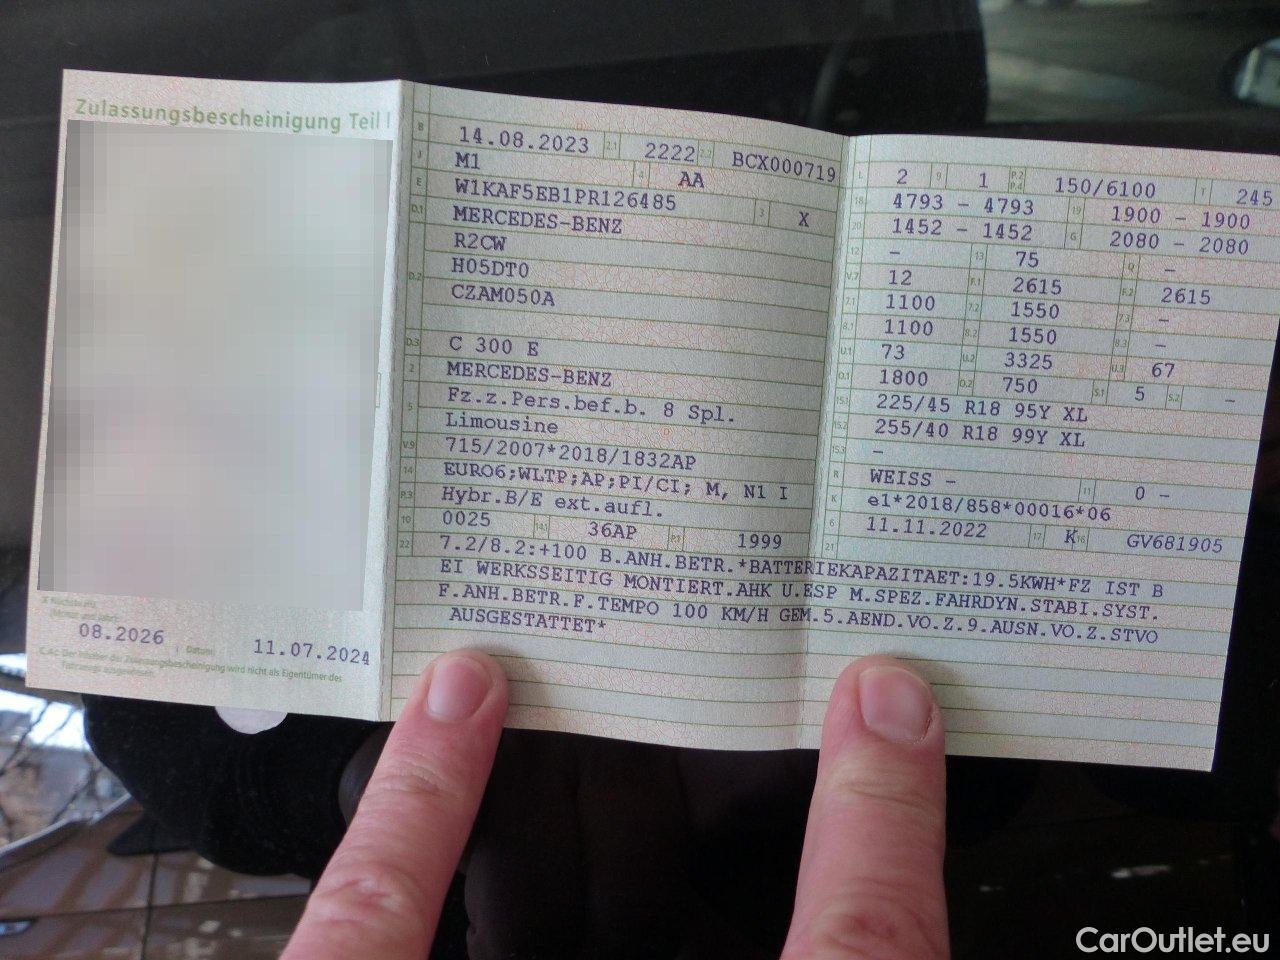 Zulassungsbescheinigung Teil I
08.2026
Datum
11.07.2024
B 14.08.2023 2.1 2222 2.2 BCX000719
J M1 4 AA
E W1KAF5EB1PR126485 3 X
D.1 MERCEDES-BENZ
R2CW
D.2 H05DT0
CZAM050A
D.3 C 300 E
2 MERCEDES-BENZ
5 Fz.z.Pers.bef.b. 8 Spl.
Limousine
V.9 715/2007*2018/1832AP
14 EURO6;WLTP;AP;PI/CI; M, N1 I
P.3 Hybr.B/E ext.aufl.
10 0025 14.1 36AP P.1 1999
L 2 9 1 P.2 P.4 150/6100 T 245
18 4793 - 4793 19 1900 - 1900
20 1452 - 1452 G 2080 - 2080
12 - 13 75 Q -
V.7 12 F.1 2615 F.2 2615
7.1 1100 7.2 1550 7.3 -
8.1 1100 8.2 1550 8.3 -
U.1 73 U.2 3325 U.3 67
O.1 1800 O.2 750 S.1 5 S.2 -
15.1 225/45 R18 95Y XL
15.2 255/40 R18 99Y XL
15.3 -
R WEISS - 11 0 -
K e1*2018/858*00016*06
6 11.11.2022 17 K 16 GV681905
21
22 7.2/8.2:+100 B.ANH.BETR.*BATTERIEKAPAZITAET:19.5KWH*FZ IST B
EI WERKSSEITIG MONTIERT.AHK U.ESP M.SPEZ.FAHRDYN.STABI.SYST.
F.ANH.BETR.F.TEMPO 100 KM/H GEM.5.AEND.VO.Z.9.AUSN.VO.Z.STVO
AUSGESTATTET*
CarOutlet.eu